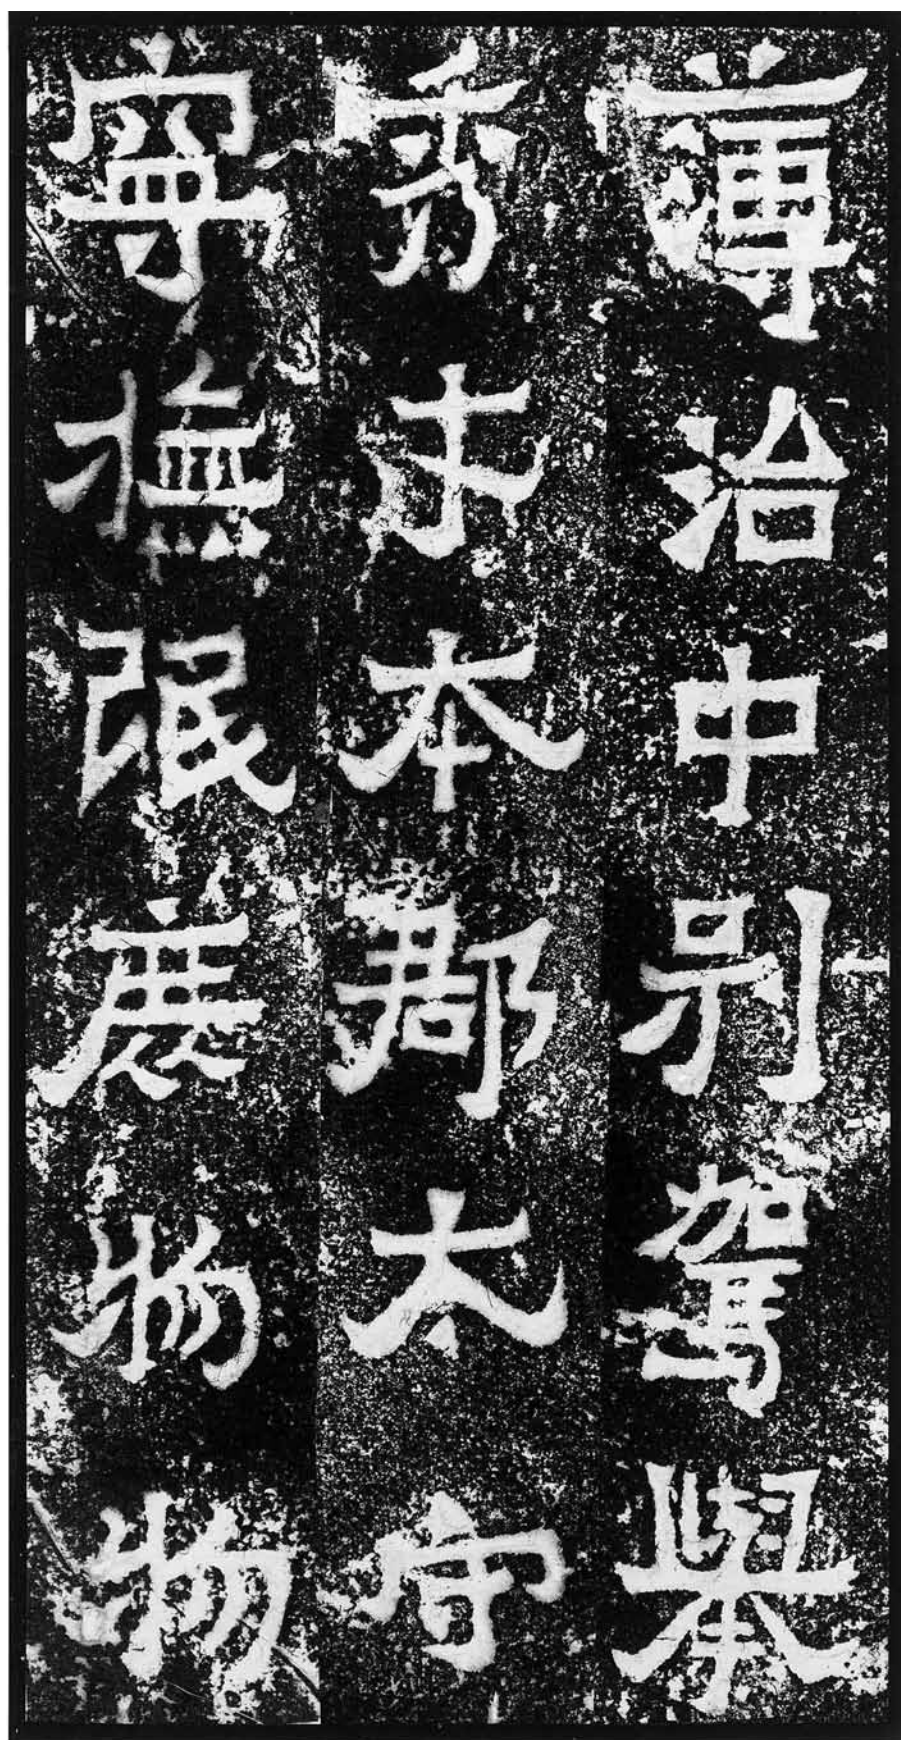 簿治中別駕舉
秀才本郡太守
寧撫氓庶物物